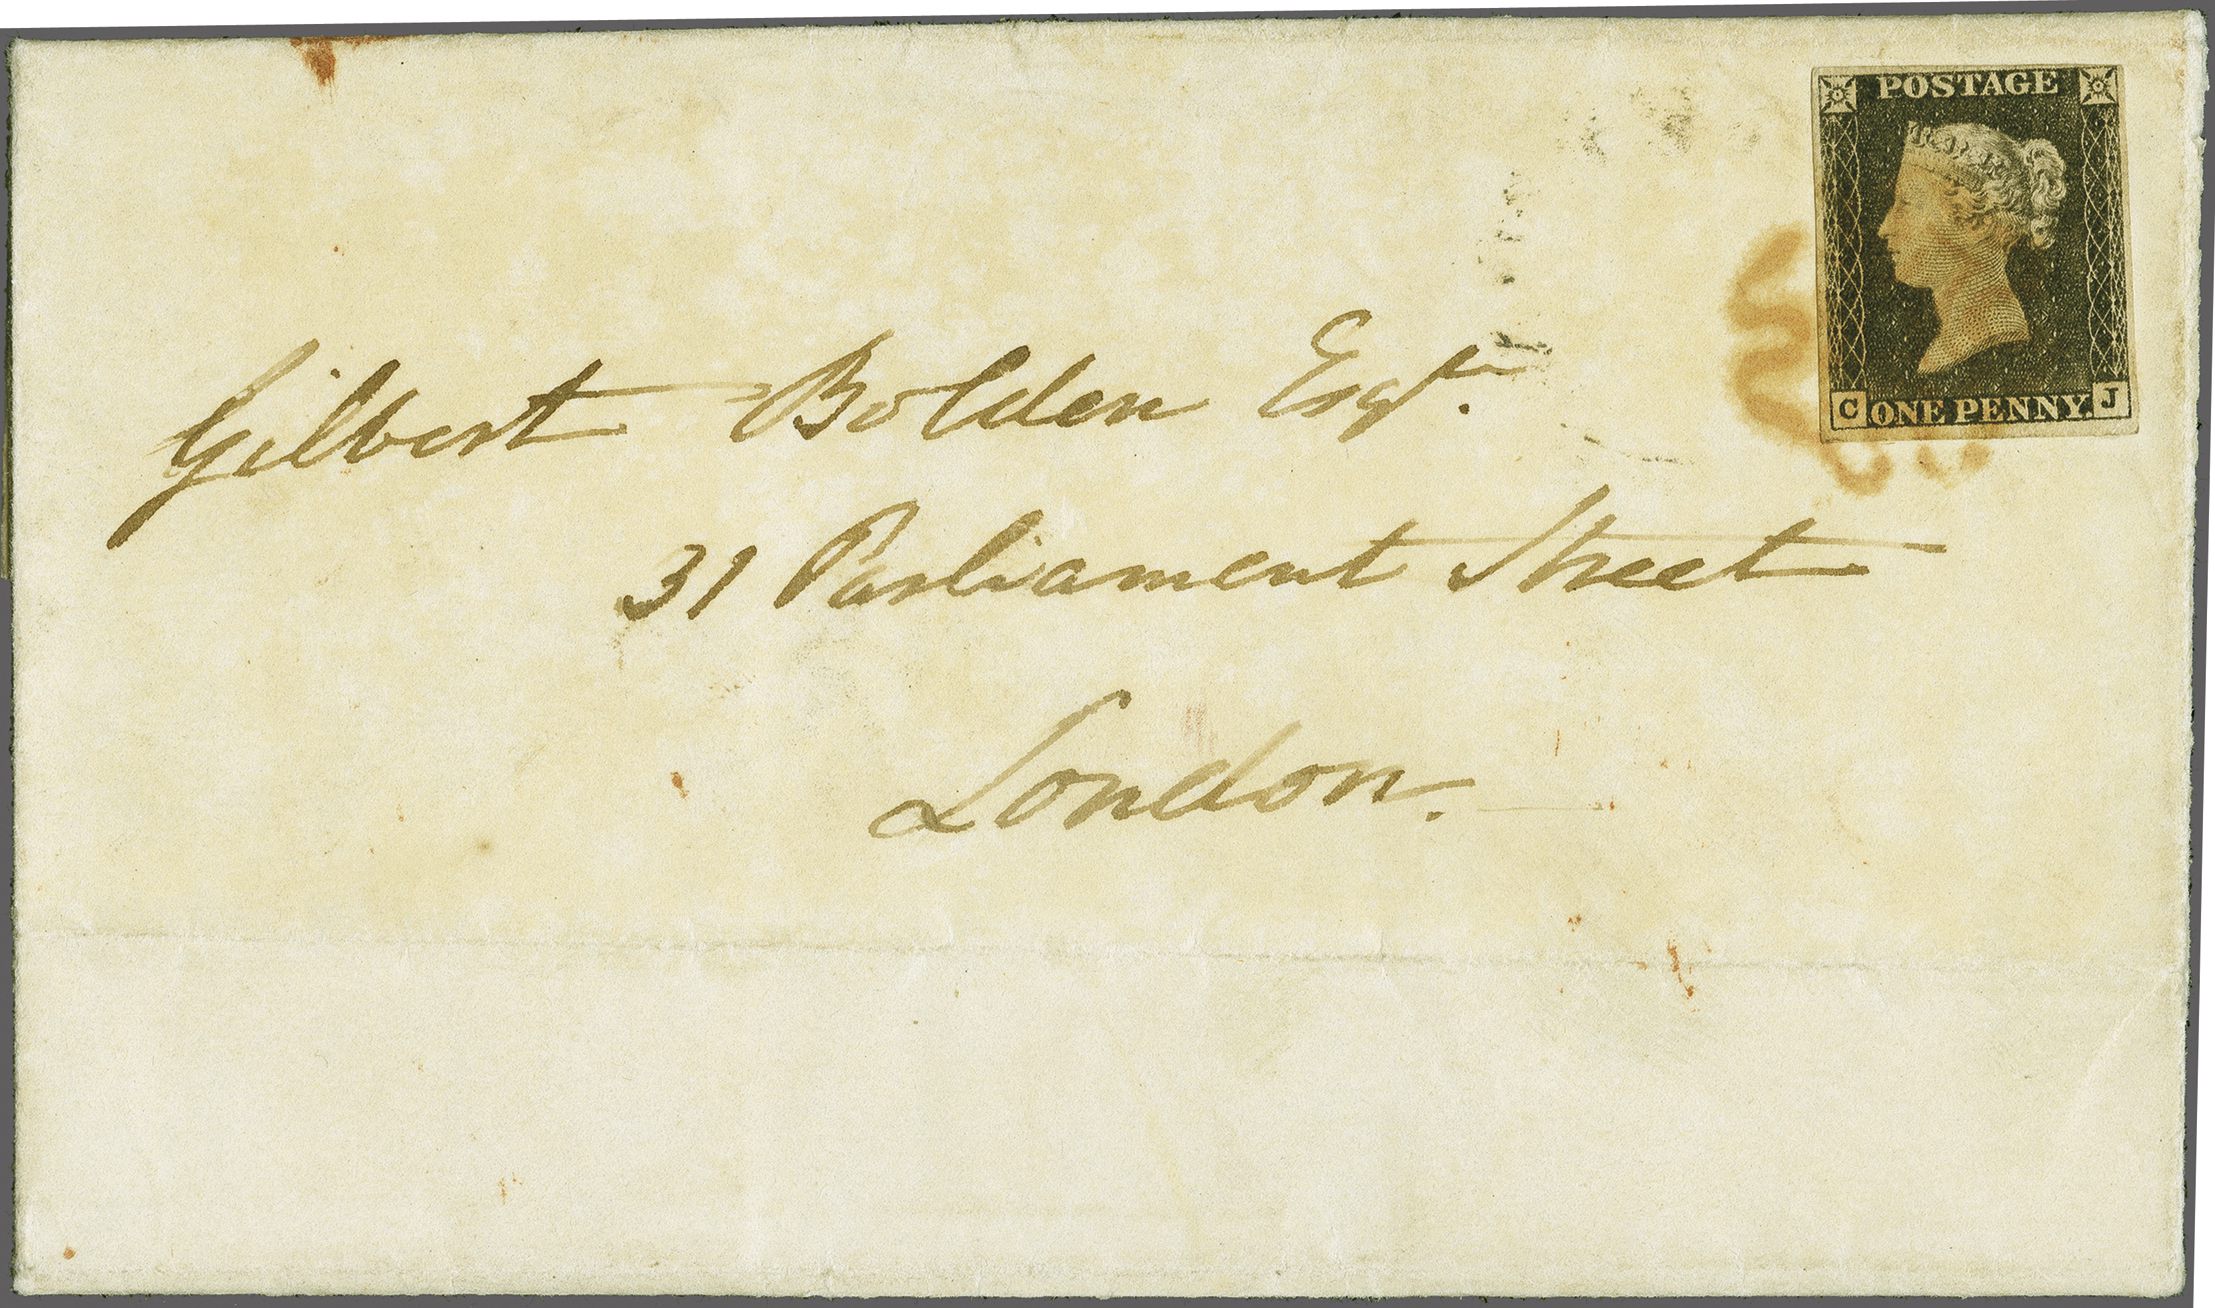 POSTAGE
C ONE PENNY. J
Gilbert Bolden Esqr.
31 Parliament Street
London.